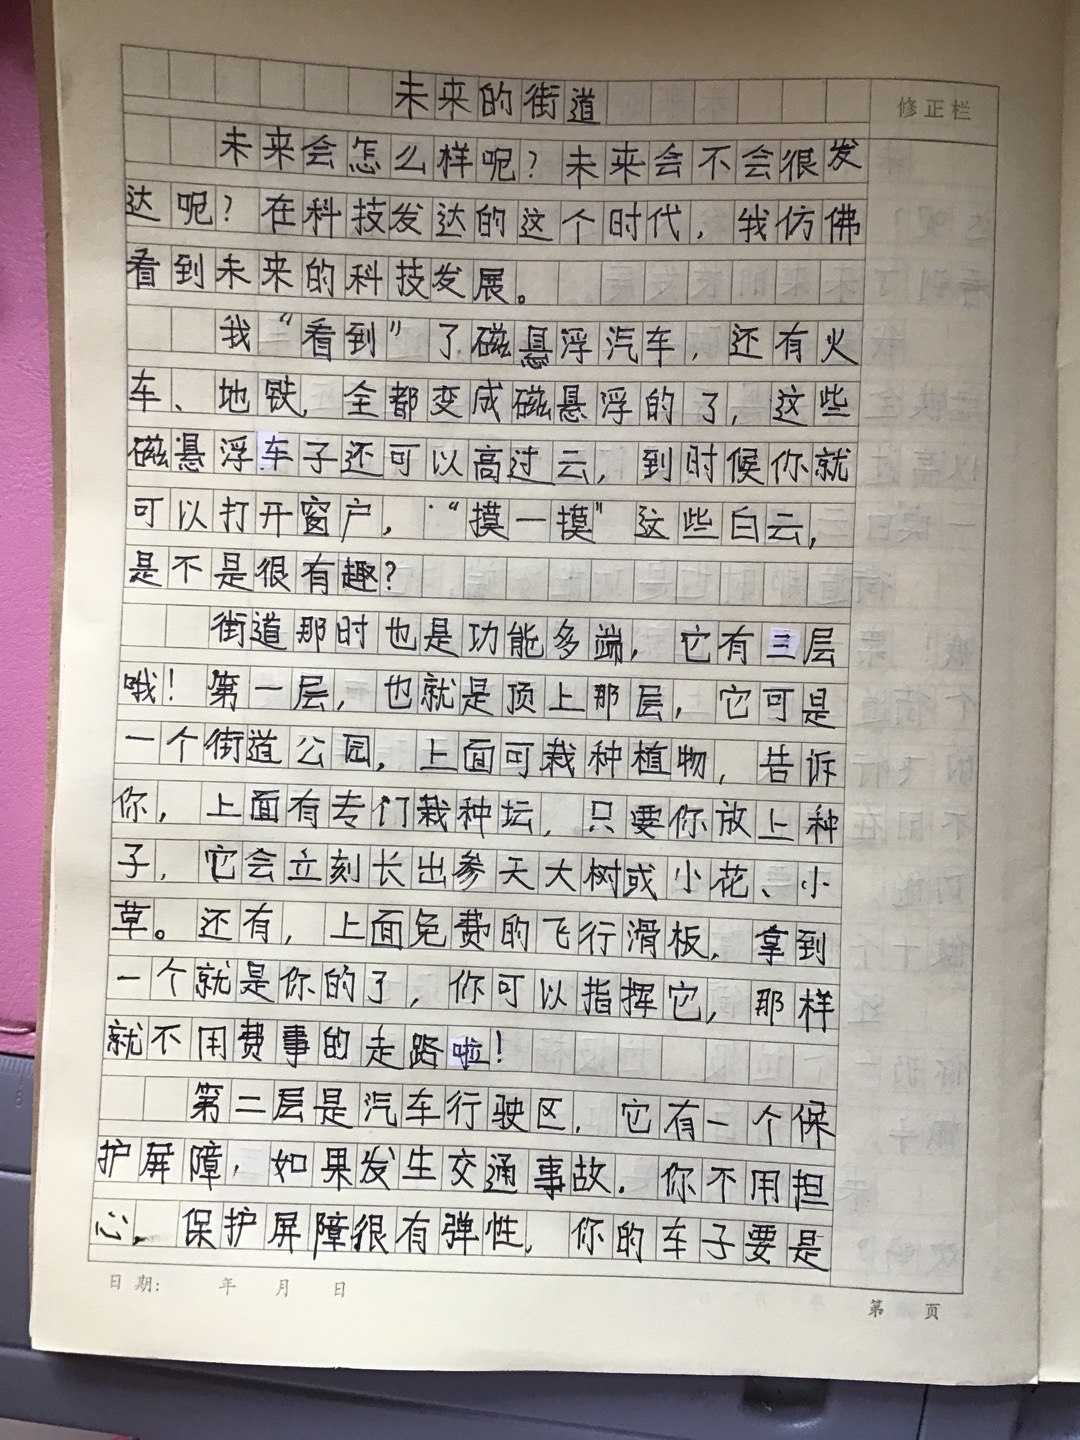 未来的街道
修正栏
未来会怎么样呢？未来会不会很发
达呢？在科技发达的这个时代，我仿佛
看到未来的科技发展。
我“看到”了磁悬浮汽车，还有火
车、地铁，全都变成磁悬浮的了，这些
磁悬浮车子还可以高过云，到时候你就
可以打开窗户，“摸一摸”这些白云，
是不是很有趣？
街道那时也是功能多端，它有三层
哦！第一层，也就是顶上那层，它可是
一个街道公园，上面可栽种植物，告诉
你，上面有专门栽种坛，只要你放上种
子，它会立刻长出参天大树或小花、小
草。还有，上面免费的飞行滑板，拿到
一个就是你的了，你可以指挥它，那样
就不用费事的走路啦！
第二层是汽车行驶区，它有一个保
护屏障，如果发生交通事故，你不用担
心，保护屏障很有弹性，你的车子要是
日期： 年 月 日
第 页